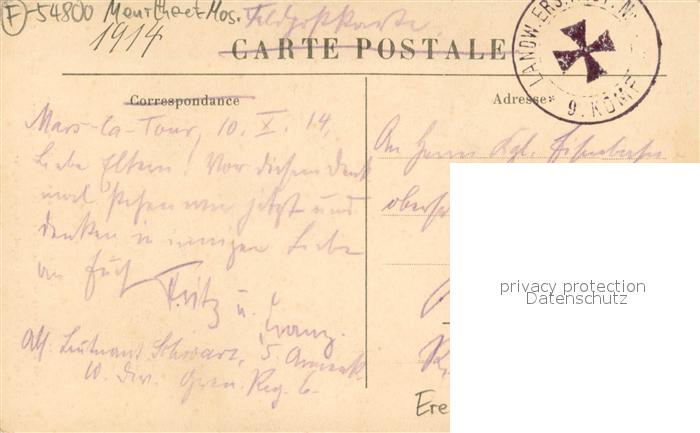 F-54800 Meurthe et Mos.
1914
Feldpostkarte.
CARTE POSTALE
LANDW. ERS. BAT. N
9. KOMP.
Correspondance
Adresse
Mars-la-Tour, 10. X. 14.
Liebe Eltern! Vor diesem Denk
mal stehen wir jetzt und
denken in inniger Liebe
an Euch
Fritz u. Franz.
Abs. Leutnant Schwarz, 5. Armeek.
10. Div. Gren. Reg. 6.
An Herrn Kgl. Eisenbahn
oberse
privacy protection
Datenschutz
Ere